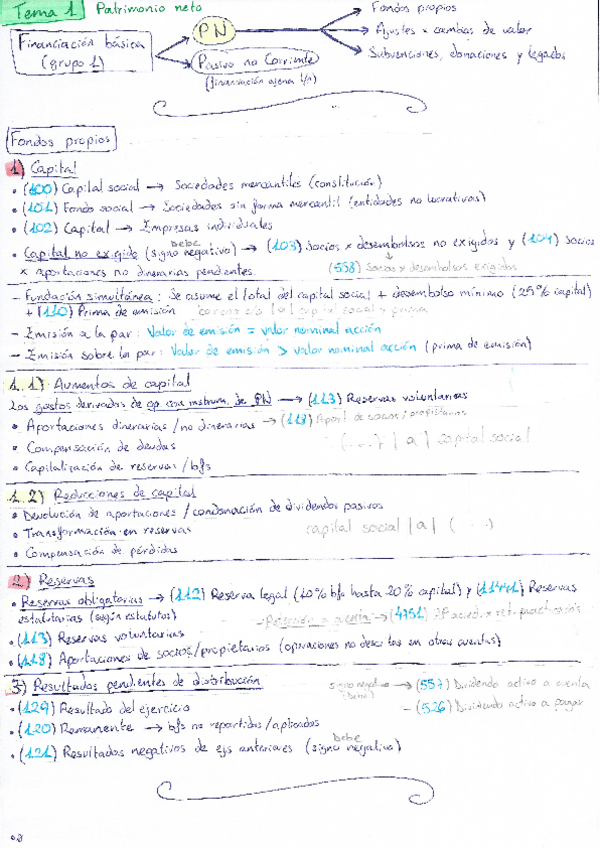 Tema 1 Patrimonio neto
Financiación básica (grupo 1)
PN
Pasivo no Corriente
(financiación ajena l/p)
Fondos propios
Ajustes x cambios de valor
Subvenciones, donaciones y legados
Fondos propios
1) Capital
• (100) Capital social → Sociedades mercantiles (constitución)
• (101) Fondo social → Sociedades sin forma mercantil (entidades no lucrativas)
• (102) Capital → Empresas individuales
• Capital no exigido (signo negativo) → (103) Socios x desembolsos no exigidos y (104) Socios
debe
x aportaciones no dinerarias pendientes.
(558) Socios x desembolsos exigidos
– Fundación simultánea: Se asume el total del capital social + desembolso mínimo (25% capital)
+ (110) Prima de emisión
– Emisión a la par: Valor de emisión = valor nominal acción
– Emisión sobre la par: Valor de emisión > valor nominal acción (prima de emisión)
1.1) Aumentos de capital
Los gastos derivados de op con instrum. de PN → (113) Reservas voluntarias
• Aportaciones dinerarias / no dinerarias → (118) Aport de socios / propietarios
• Compensación de deudas
(...) | a | capital social
• Capitalización de reservas / bfs
1.2) Reducciones de capital
• Devolución de aportaciones / condonación de dividendos pasivos
• Transformación en reservas
capital social | a | (...)
• Compensación de pérdidas
2) Reservas
• Reservas obligatorias → (112) Reserva legal (10% bfs hasta 20% capital) y (1141) Reservas
estatutarias (según estatutos)
– Retención a cuenta → (4751) HP acred. x ret. practicadas
• (113) Reservas voluntarias
• (118) Aportaciones de socios/propietarios (operaciones no descritas en otras cuentas)
3) Resultados pendientes de distribución
signo negat (debe) → (557) Dividendo activo a cuenta
• (129) Resultado del ejercicio
– (526) Dividendo activo a pagar
• (120) Remanente → bfs no repartidos/aplicados
• (121) Resultados negativos de ejs anteriores (signo negativo)
debe